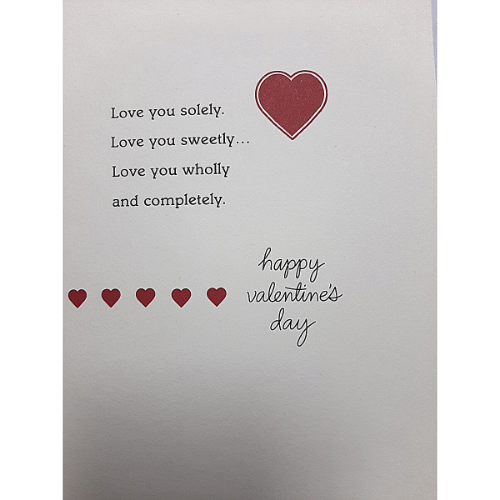 Love you solely.
Love you sweetly...
Love you wholly
and completely.
happy
valentine's
day